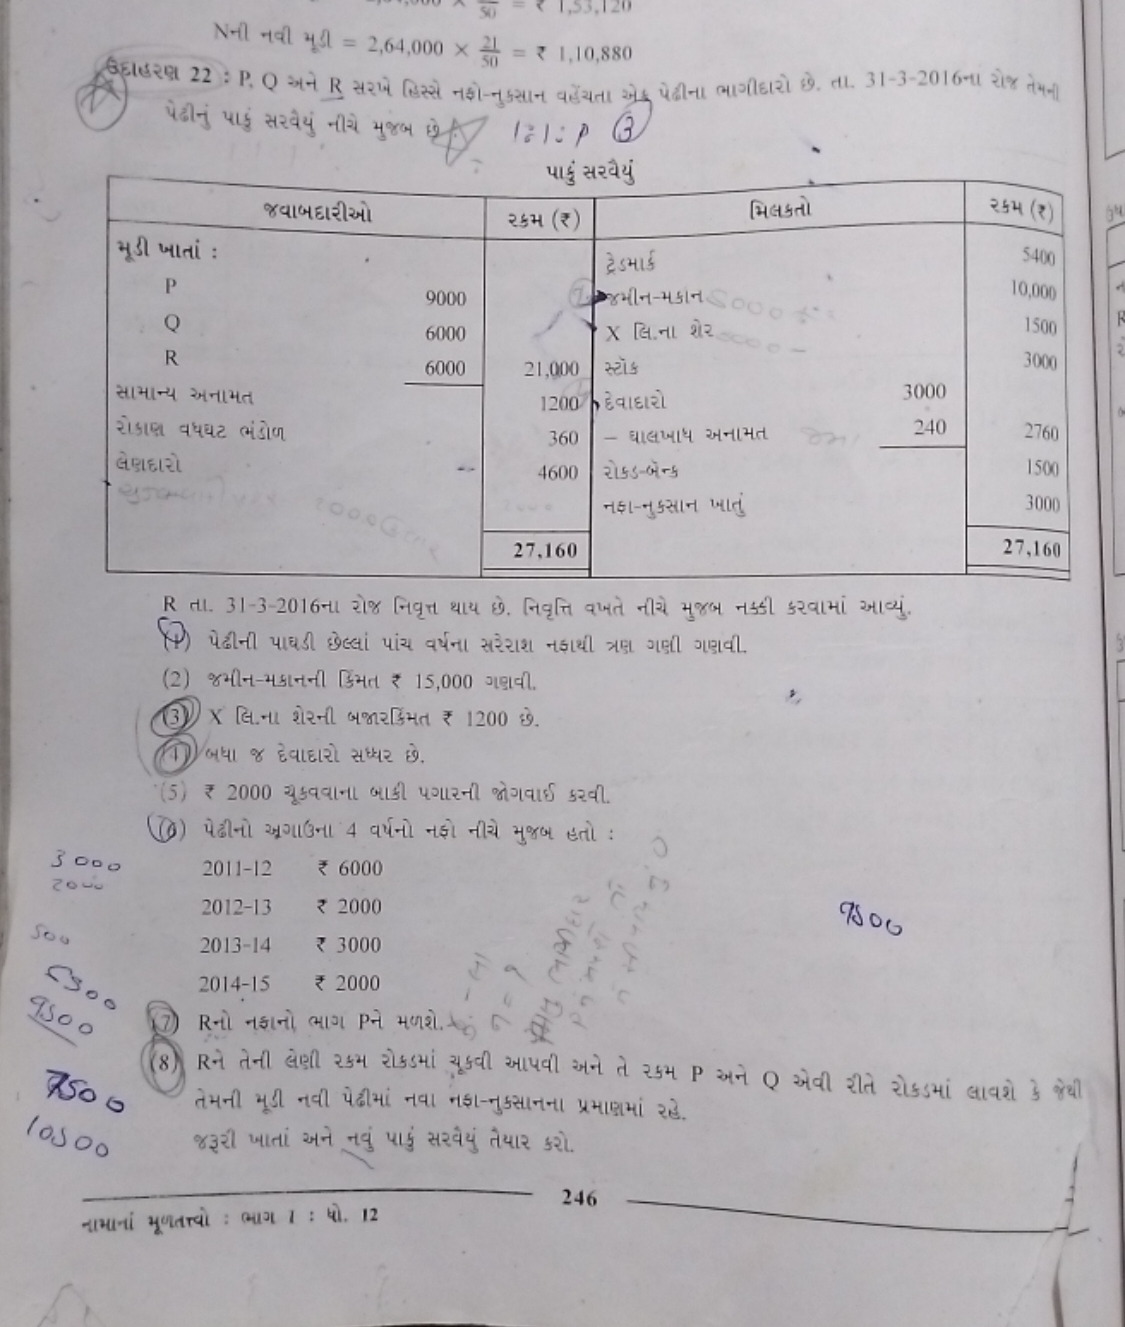 Nની નવી મૂડી = 2,64,000 × 21/50 = ₹ 1,10,880
ઉદાહરણ 22 : P, Q અને R સરખે હિસ્સે નફો-નુકસાન વહેંચતા એક પેઢીના ભાગીદારો છે. તા. 31-3-2016ના રોજ તેમની
પેઢીનું પાકું સરવૈયું નીચે મુજબ છે.
પાકું સરવૈયું
જવાબદારીઓ રકમ (₹) મિલકતો રકમ (₹)
મૂડી ખાતાં : ટ્રેડમાર્ક 5400
P 9000 જમીન-મકાન 10,000
Q 6000 X લિ.ના શેર 1500
R 6000 21,000 સ્ટૉક 3000
સામાન્ય અનામત 1200 દેવાદારો 3000
રોકાણ વધઘટ ભંડોળ 360 – ઘાલખાધ અનામત 240 2760
લેણદારો 4600 રોકડ-બૅન્ક 1500
નફા-નુકસાન ખાતું 3000
27,160 27,160
R તા. 31-3-2016ના રોજ નિવૃત્ત થાય છે. નિવૃત્તિ વખતે નીચે મુજબ નક્કી કરવામાં આવ્યું.
(1) પેઢીની પાઘડી છેલ્લાં પાંચ વર્ષના સરેરાશ નફાથી ત્રણ ગણી ગણવી.
(2) જમીન-મકાનની કિંમત ₹ 15,000 ગણવી.
(3) X લિ.ના શેરની બજારકિંમત ₹ 1200 છે.
(4) બધા જ દેવાદારો સધ્ધર છે.
(5) ₹ 2000 ચૂકવવાના બાકી પગારની જોગવાઈ કરવી.
(6) પેઢીનો અગાઉના 4 વર્ષનો નફો નીચે મુજબ હતો :
3000
2000
2011-12 ₹ 6000
2012-13 ₹ 2000
9500
500
2013-14 ₹ 3000
2014-15 ₹ 2000
9500
(7) Rનો નફાનો ભાગ Pને મળશે.
(8) Rને તેની લેણી રકમ રોકડમાં ચૂકવી આપવી અને તે રકમ P અને Q એવી રીતે રોકડમાં લાવશે કે જેથી
7500
તેમની મૂડી નવી પેઢીમાં નવા નફા-નુકસાનના પ્રમાણમાં રહે.
10500
જરૂરી ખાતાં અને નવું પાકું સરવૈયું તૈયાર કરો.
246
નામાનાં મૂળતત્ત્વો : ભાગ 1 : ધો. 12